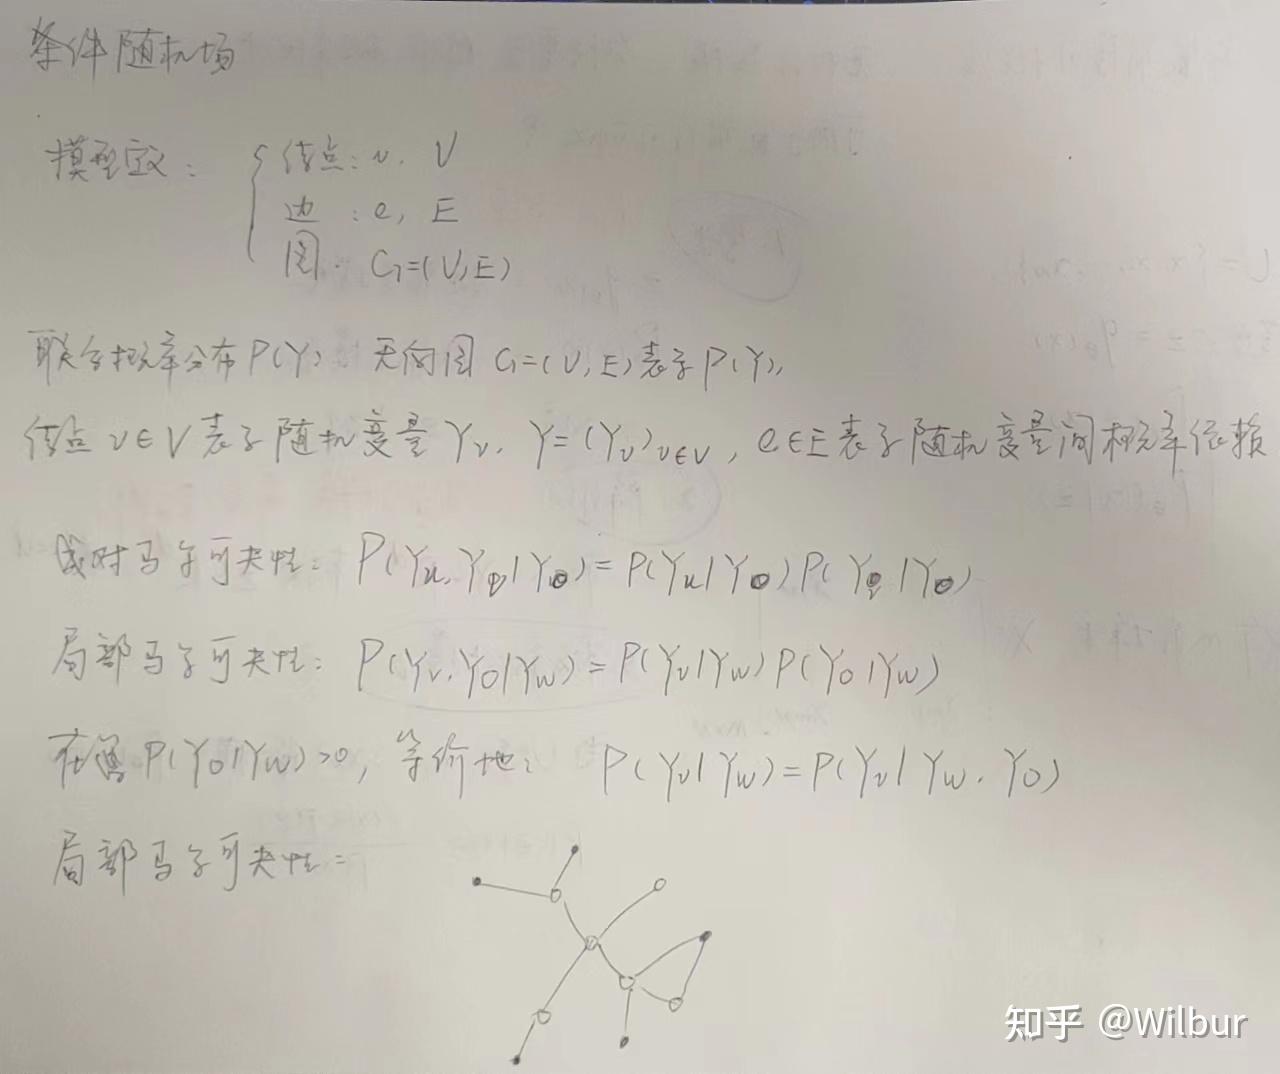 条件随机场
模型定义: 结点: v, V
边: e, E
图: G=(V,E)
联合概率分布P(Y) 无向图 G=(V,E)表示P(Y),
结点 v∈V 表示随机变量 Yv, Y=(Yv)v∈V, e∈E表示随机变量间概率依赖
成对马尔可夫性: P(Yu, Yv|YO)=P(Yu|YO)P(Yv|YO)
局部马尔可夫性: P(Yv, YO|YW)=P(Yv|YW)P(YO|YW)
在 P(YO|YW)>0, 等价地: P(Yv|YW)=P(Yv|YW, YO)
局部马尔可夫性:
知乎 @Wilbur